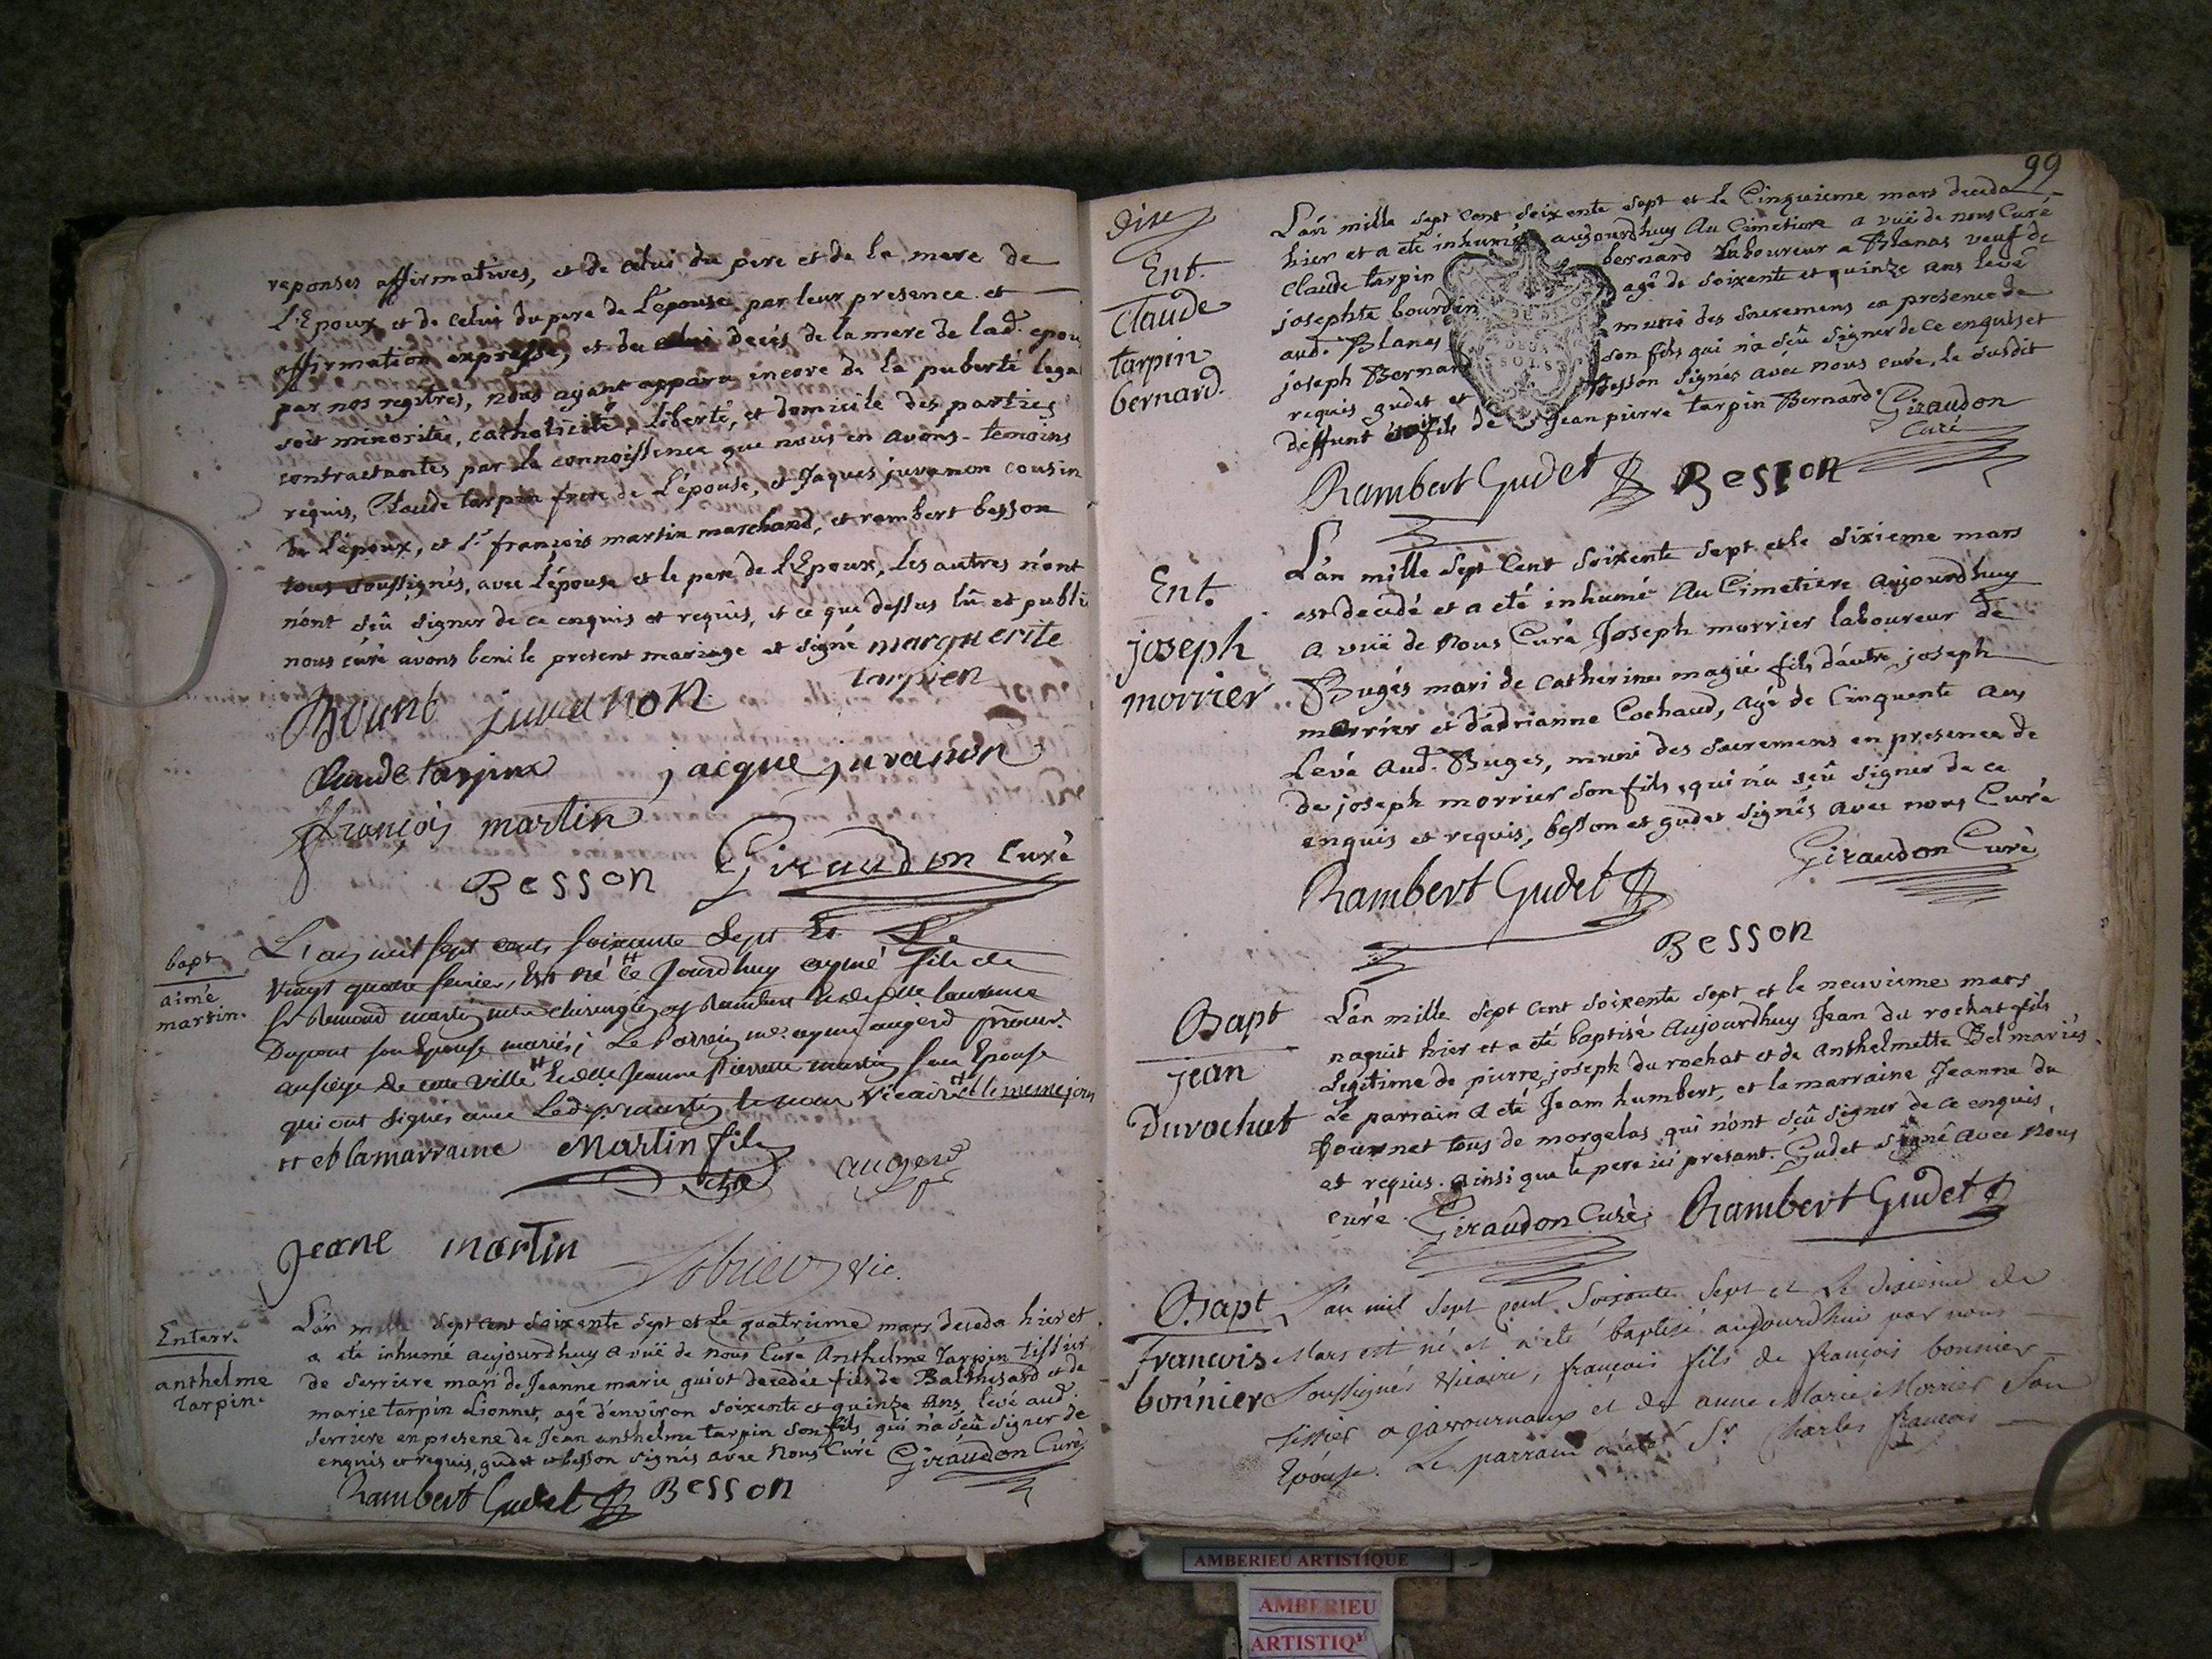 reponses affirmatives, et de celui du pere et de la mere de
L'Epoux et de celui du pere de L'epouse par leur presence et
affirmation expresse, et du decés de la mere de lad. epou
par nos regitres, nous ayant apparu encore de la puberté lega
soit minorités, catholicité, liberté, et domicile des parties
contractantes par la connoissence que nous en avons - temoins
requis, Claude tarpin frere de L'épouse, et Jaques juvanon cousin
de L'époux, et Sr. françois martin marchand, et rambert besson
tous soussignés, avec L'épouse et le pere de L'Epoux, les autres n'ont
n'ont sçû signer de ce enquis et requis, et ce que dessus lû et publi
nous curé avons beni le present mariage et signé marguerite
tarpien
juvanon
Claude tarpin jacque juvanon
ffrançois martin
Besson Giraudon Curé
bapt
aimé
martin.
L'an mil sept cents soixante Sept Et Le
vingt quatre fevrier, Est né ce Jourdhuy aymé fils de
Sr Remond martin chirurgien laurence
Dupont son Epouse mariés; Le Parrein mre aymé augerd
au siege de cette ville Jeanne pierrette martin son Epouse
qui ont signés avec Led. Sr martin et nous vicaire et le meme jour
et la marraine Martin fils
augerd
Jeane martin
vic.
Enterr.
anthelme
tarpin.
L'an mille sept cent soixente sept et le quatrieme mars deceda hier et
a eté inhumé aujourdhuy a vuë de nous Curé Anthelme Tarpin tissier
de serriere mari de Jeanne marie guiot decedée fils de Balthesard et de
marie tarpin Lionnet, agé d'environ soixente et quinze Ans, levé aud
serriere en presene de Jean anthelme tarpin son fils qui n'a sçû signer de
enquis et requis, gudet et besson signés avec Nous Curé Giraudon Curé
Rambert Gudet Besson
99
Dixe
Ent.
Claude
tarpin
bernard.
L'an mille sept cent soixente sept et le Cinquieme mars deceda
hier et a eté inhumé aujourdhuy Au Cimetiere a vuë de nous Curé
Claude tarpin bernard Laboureur a Blanas veuf de
josephte bourdin agé de soixente et quinze ans levé
aud. Blanas muni des sacremens en presence de
joseph Bernard son fils qui n'a sçû signer de ce enquis et
requis gudet et Besson signés avec nous curé, le susdit
deffunt fils de Jean pierre tarpin Bernard. Giraudon
Curé
Rambert Gudet Besson
Ent.
joseph
morrier
L'an mille sept Cent soixente sept et le sixieme mars
est decedé et a eté inhumé Au Cimetiere aujourdhuy
a vuë de Nous Curé Joseph morrier laboureur de
Bugés mari de catherine magié fils d'autre joseph
morrier et d'adrianne Cochaud, agé de Cinquente ans
Levé aud. Buges, muni des sacremens en presence de
de joseph morrier son fils, qui n'a sçû signer de ce
enquis et requis, besson et gudet signés avec nous Curé
Rambert Gudet Giraudon Curé
Besson
Bapt
jean
Durochat
L'an mille sept cent soixente sept et le neuvieme mars
naquit hier et a eté baptisé aujourdhuy Jean du rochat fils
Legitime de pierre joseph du rochat et de Anthelmette Bel mariés
Le parrain a eté Jeam humbert, et la marraine Jeanne du
fournet tous de morgelas qui n'ont sçû signer de ce enquis
et requis. ainsi que le pere ici present. Gudet signé avec Nous
curé. Giraudon Curé Rambert Gudet
Bapt
francois
bonnier
L'an mil Sept cent Soixante Sept et Le dixieme de
Mars est né et a été baptisé aujourdhui par nous
Soussigné Vicaire, françois fils de françois bonnier
tissier a javournaux et de anne Marie Morrier Son
Epouse. Le parrain a été Sr. Charles francois
AMBERIEU ARTISTIQUE
AMBERIEU
ARTISTIQ